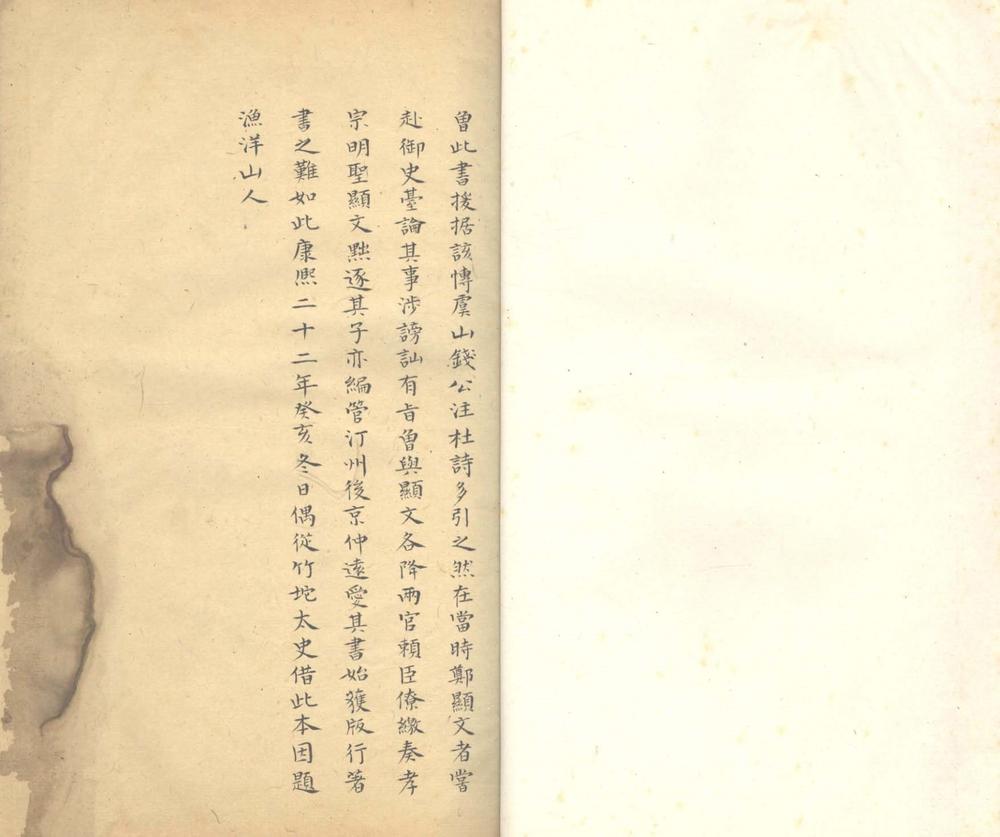 曾此書援据該博虞山錢公注杜詩多引之然在當時鄭顯文者嘗
赴御史臺論其事涉謗訕有旨曾與顯文各降兩官賴臣僚繳奏孝
宗明聖顯文黜逐其子亦編管汀州後京仲遠愛其書始獲版行著
書之難如此康熙二十二年癸亥冬日偶從竹垞太史借此本因題
漁洋山人